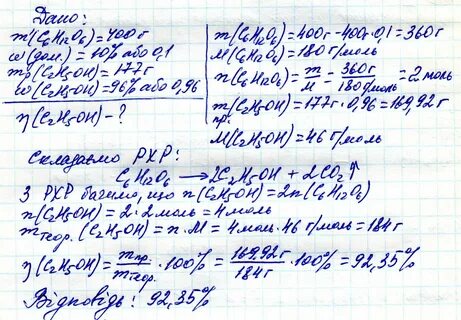 Дано:
m(C₆H₁₂O₆) = 400г
ω(дом.) = 10% або 0,1
mр(C₂H₅OH) = 177г
ω(C₂H₅OH) = 96% або 0,96
η(C₂H₅OH) - ?
m(C₆H₁₂O₆) = 400г - 400·0,1 = 360г
M(C₆H₁₂O₆) = 180 г/моль
n(C₆H₁₂O₆) = m/M = 360г/180г/моль = 2 моль
mпр.(C₂H₅OH) = 177г · 0,96 = 169,92г
M(C₂H₅OH) = 46 г/моль
Складаємо РХР:
C₆H₁₂O₆ → 2C₂H₅OH + 2CO₂↑
З РХР бачимо, що n(C₂H₅OH) = 2n(C₆H₁₂O₆)
n(C₂H₅OH) = 2·2 моль = 4 моль
mтеор.(C₂H₅OH) = n·M = 4 моль·46 г/моль = 184г
η(C₂H₅OH) = mпр./mтеор. · 100% = 169,92г/184г · 100% = 92,35%
Відповідь: 92,35%